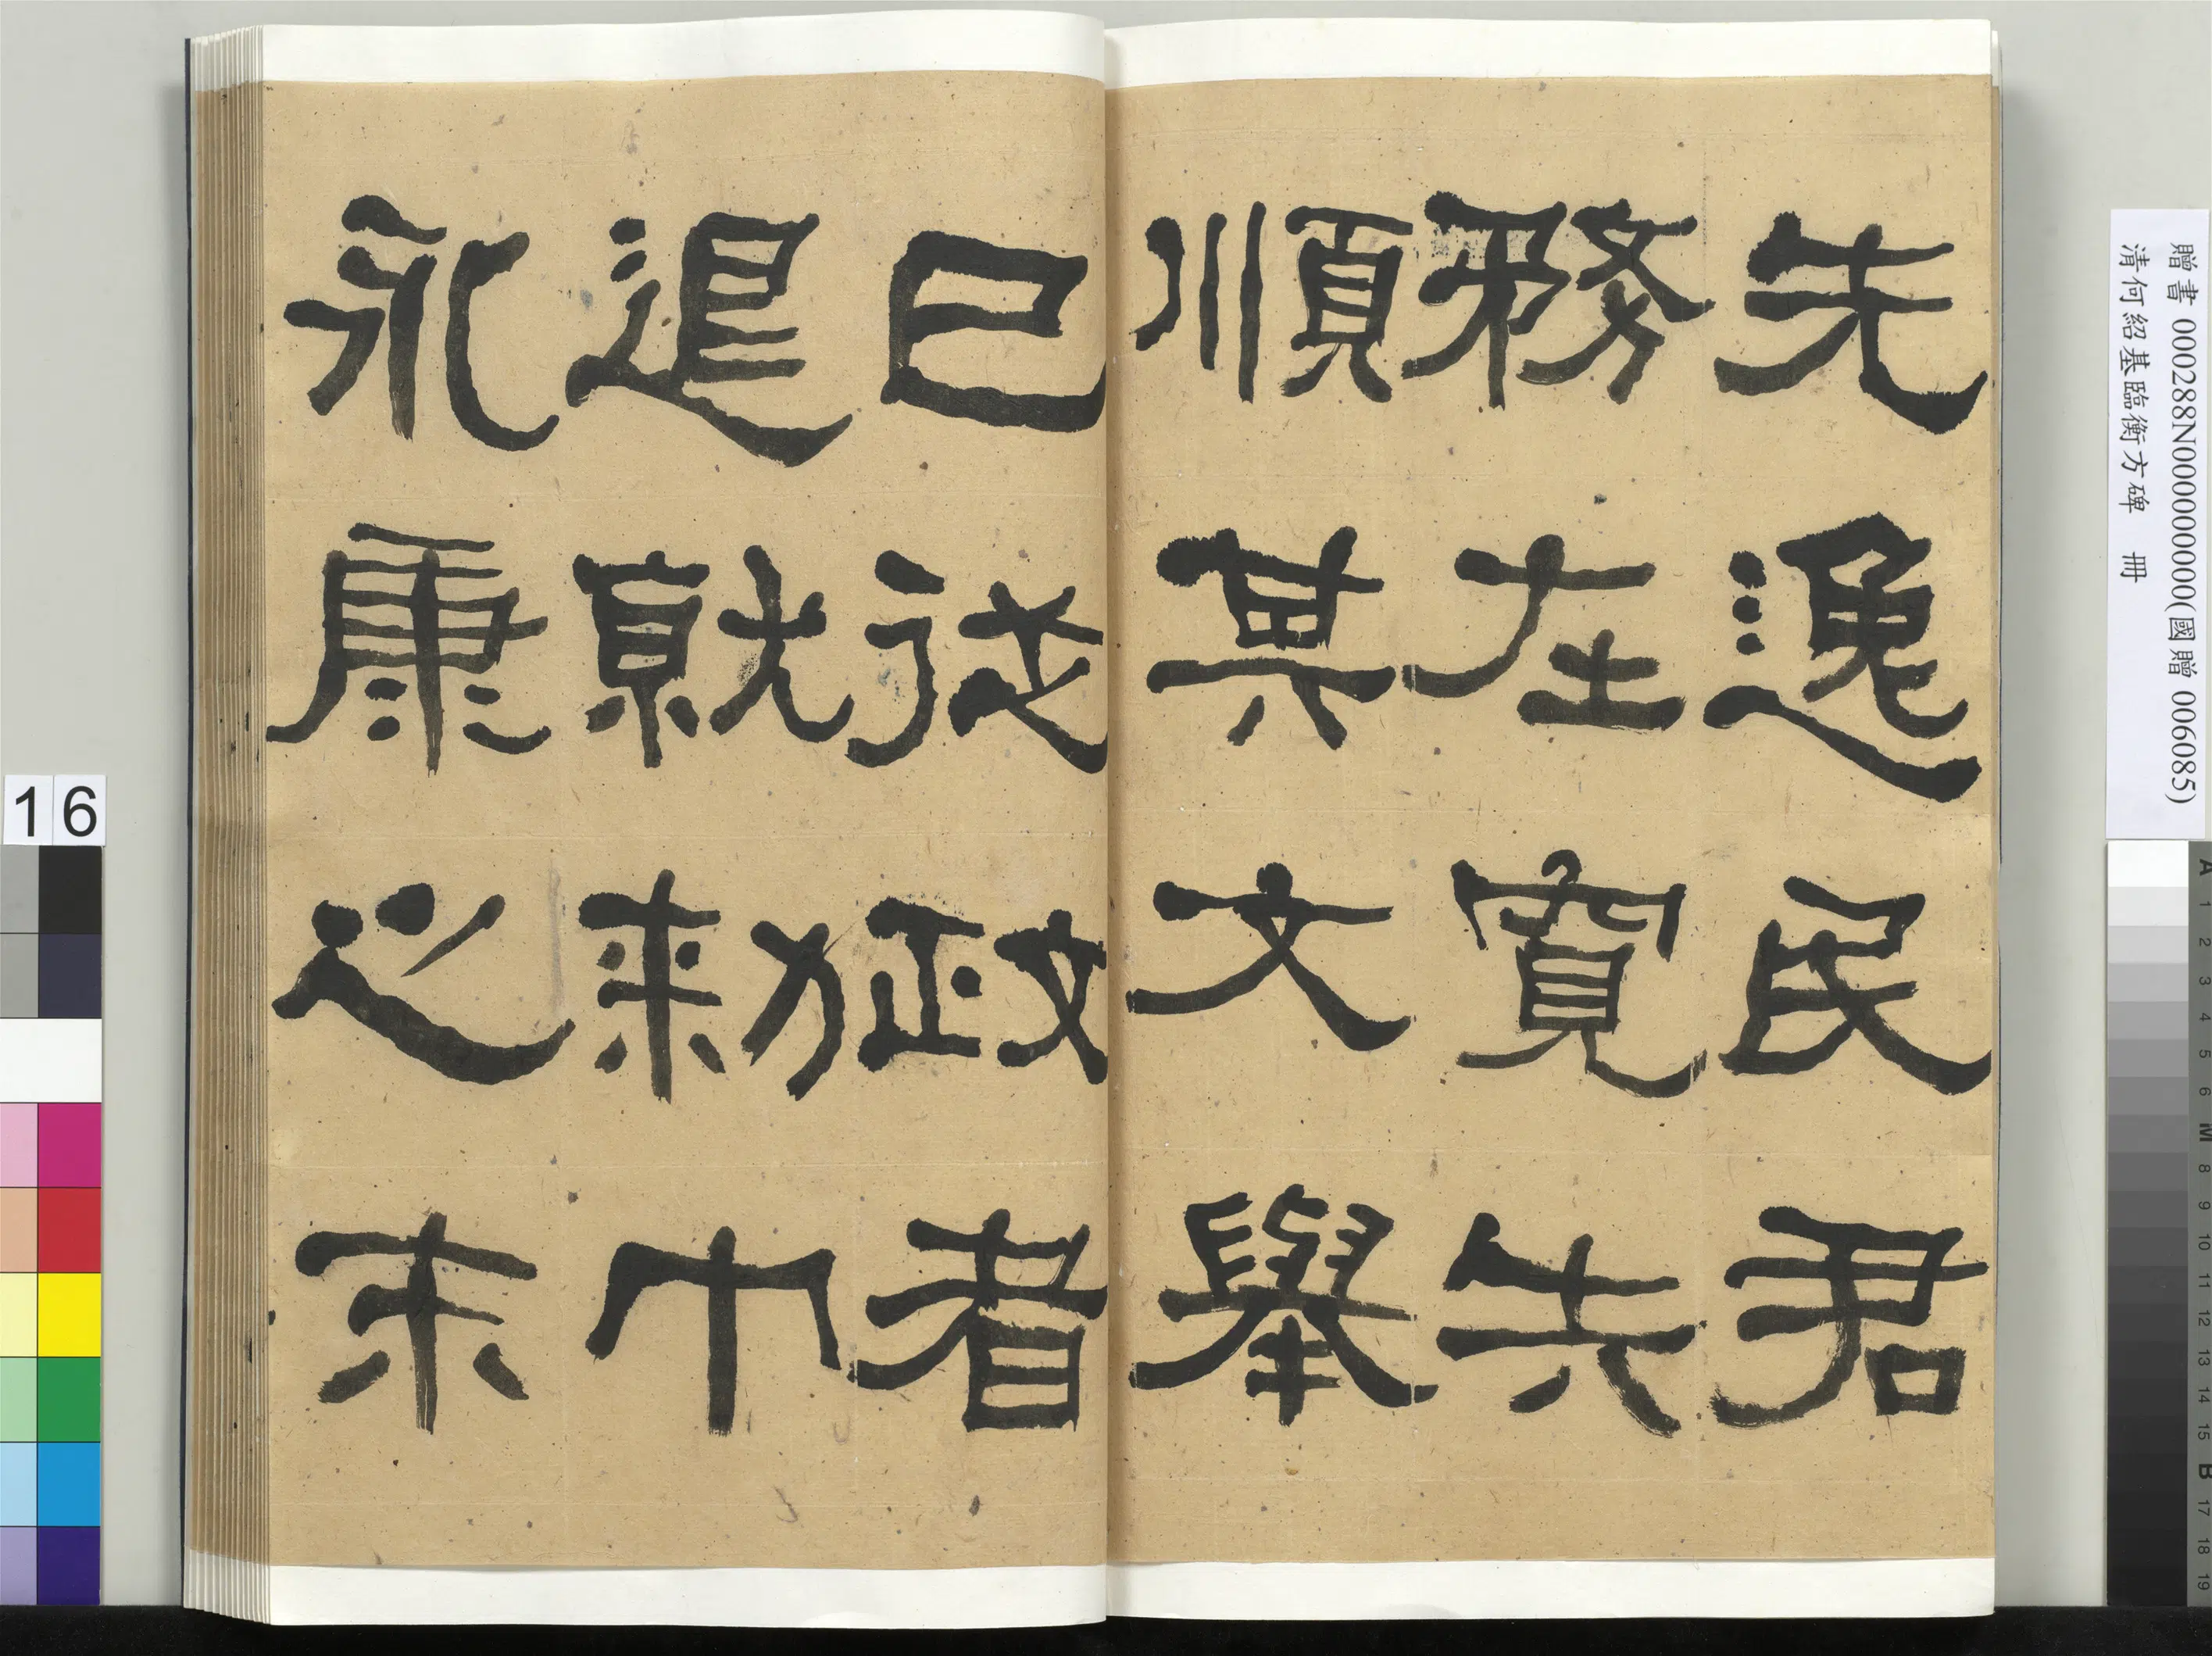 先逸民君
務在寬失
順其文舉
已從政者
退就勑巾
永康之末
贈書 000288N000000000(國贈 006085)
清何紹基臨衡方碑 冊
16
A 1 2 3 4 5 6 M 8 9 10 11 12 13 14 15 B 17 18 19